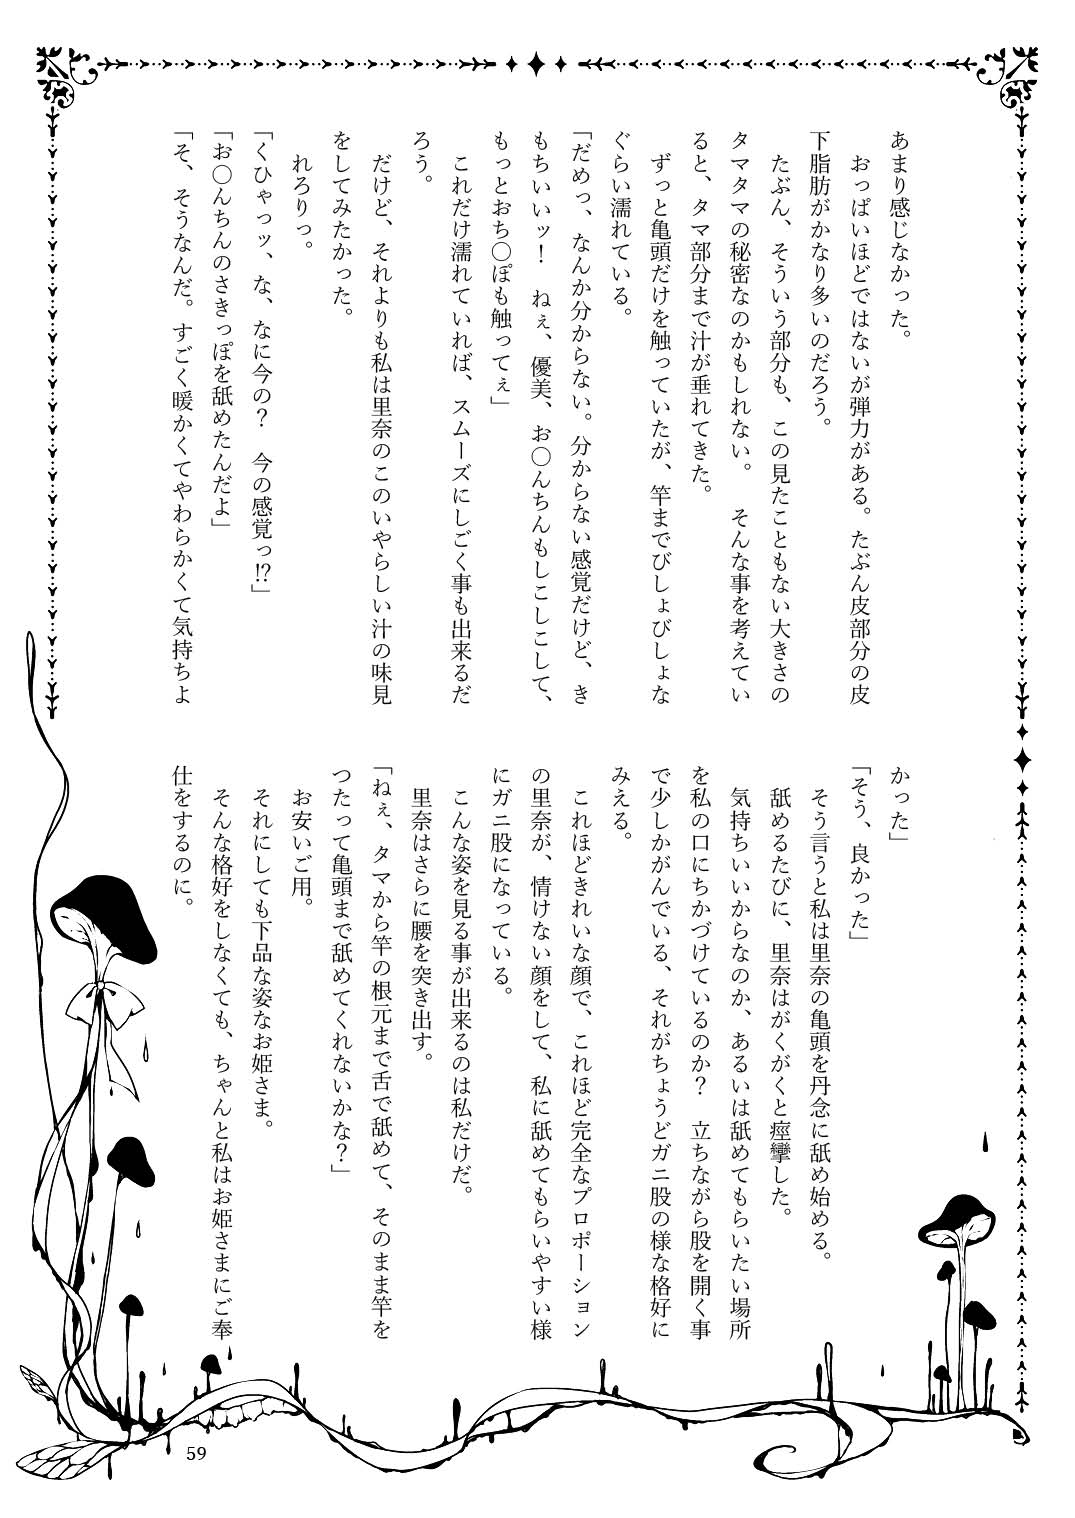 あまり感じなかった。
　おっぱいほどではないが弾力がある。たぶん皮部分の皮
下脂肪がかなり多いのだろう。
　たぶん、そういう部分も、この見たこともない大きさの
タマタマの秘密なのかもしれない。　そんな事を考えてい
ると、タマ部分まで汁が垂れてきた。
　ずっと亀頭だけを触っていたが、竿までびしょびしょな
ぐらい濡れている。
「だめっ、なんか分からない。分からない感覚だけど、き
もちいいッ！　ねぇ、優美、お〇んちんもしこしこして、
もっとおち〇ぽも触ってぇ」
　これだけ濡れていれば、スムーズにしごく事も出来るだ
ろう。
　だけど、それよりも私は里奈のこのいやらしい汁の味見
をしてみたかった。
　れろりっ。
「くひゃっッ、な、なに今の？　今の感覚っ!?」
「お〇んちんのさきっぽを舐めたんだよ」
「そ、そうなんだ。すごく暖かくてやわらかくて気持ちよ
かった」
「そう、良かった」
　そう言うと私は里奈の亀頭を丹念に舐め始める。
　舐めるたびに、里奈はがくがくと痙攣した。
　気持ちいいからなのか、あるいは舐めてもらいたい場所
を私の口にちかづけているのか？　立ちながら股を開く事
で少しかがんでいる、それがちょうどガニ股の様な格好に
みえる。
　これほどきれいな顔で、これほど完全なプロポーション
の里奈が、情けない顔をして、私に舐めてもらいやすい様
にガニ股になっている。
　こんな姿を見る事が出来るのは私だけだ。
　里奈はさらに腰を突き出す。
「ねぇ、タマから竿の根元まで舌で舐めて、そのまま竿を
つたって亀頭まで舐めてくれないかな？」
　お安いご用。
　それにしても下品な姿なお姫さま。
　そんな格好をしなくても、ちゃんと私はお姫さまにご奉
仕をするのに。
59